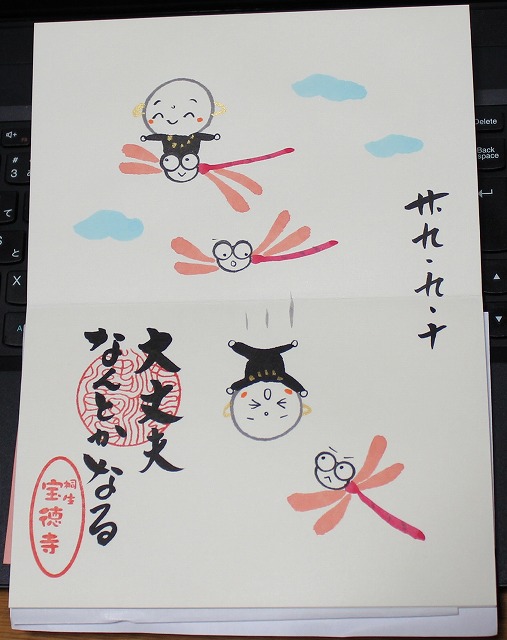 廿九・九・十
大丈夫
なんとかなる
桐生
宝徳寺
Delete
Back
space
#
3
て
と
X